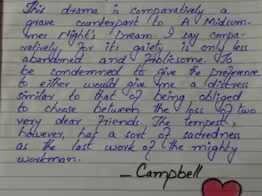 This drama is comparatively a
grave counterpart to A Midsum-
mer Night's Dream. I say compa-
ratively, for its gaiety is only less
abandoned and frolicsome. To
be condemned to give the preference
to either would give me a distress
similar to that of being obliged
to choose between the loss of two
very dear friends. The Tempest,
however, has a sort of sacredness
as the last work of the mighty
workman.
— Campbell